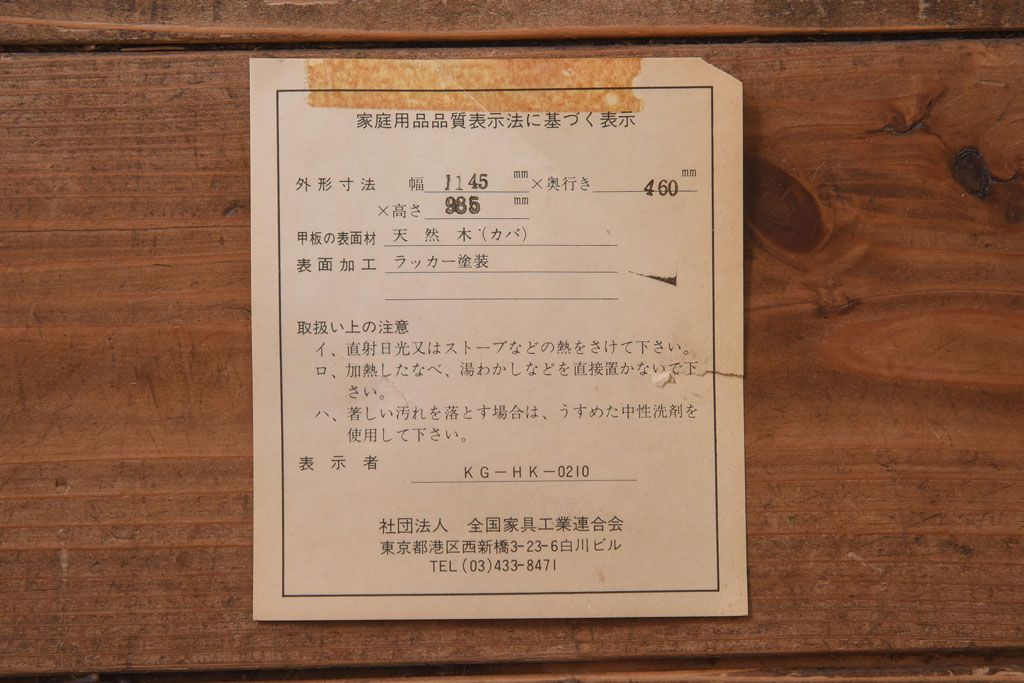 家庭用品品質表示法に基づく表示
外形寸法 幅 1145 mm ×奥行き 460 mm
×高さ 985 mm
甲板の表面材 天然木(カバ)
表面加工 ラッカー塗装
取扱い上の注意
イ、直射日光又はストーブなどの熱をさけて下さい。
ロ、加熱したなべ、湯わかしなどを直接置かないで下
さい。
ハ、著しい汚れを落とす場合は、うすめた中性洗剤を
使用して下さい。
表示者 KG-HK-0210
社団法人 全国家具工業連合会
東京都港区西新橋3-23-6白川ビル
TEL(03)433-8471